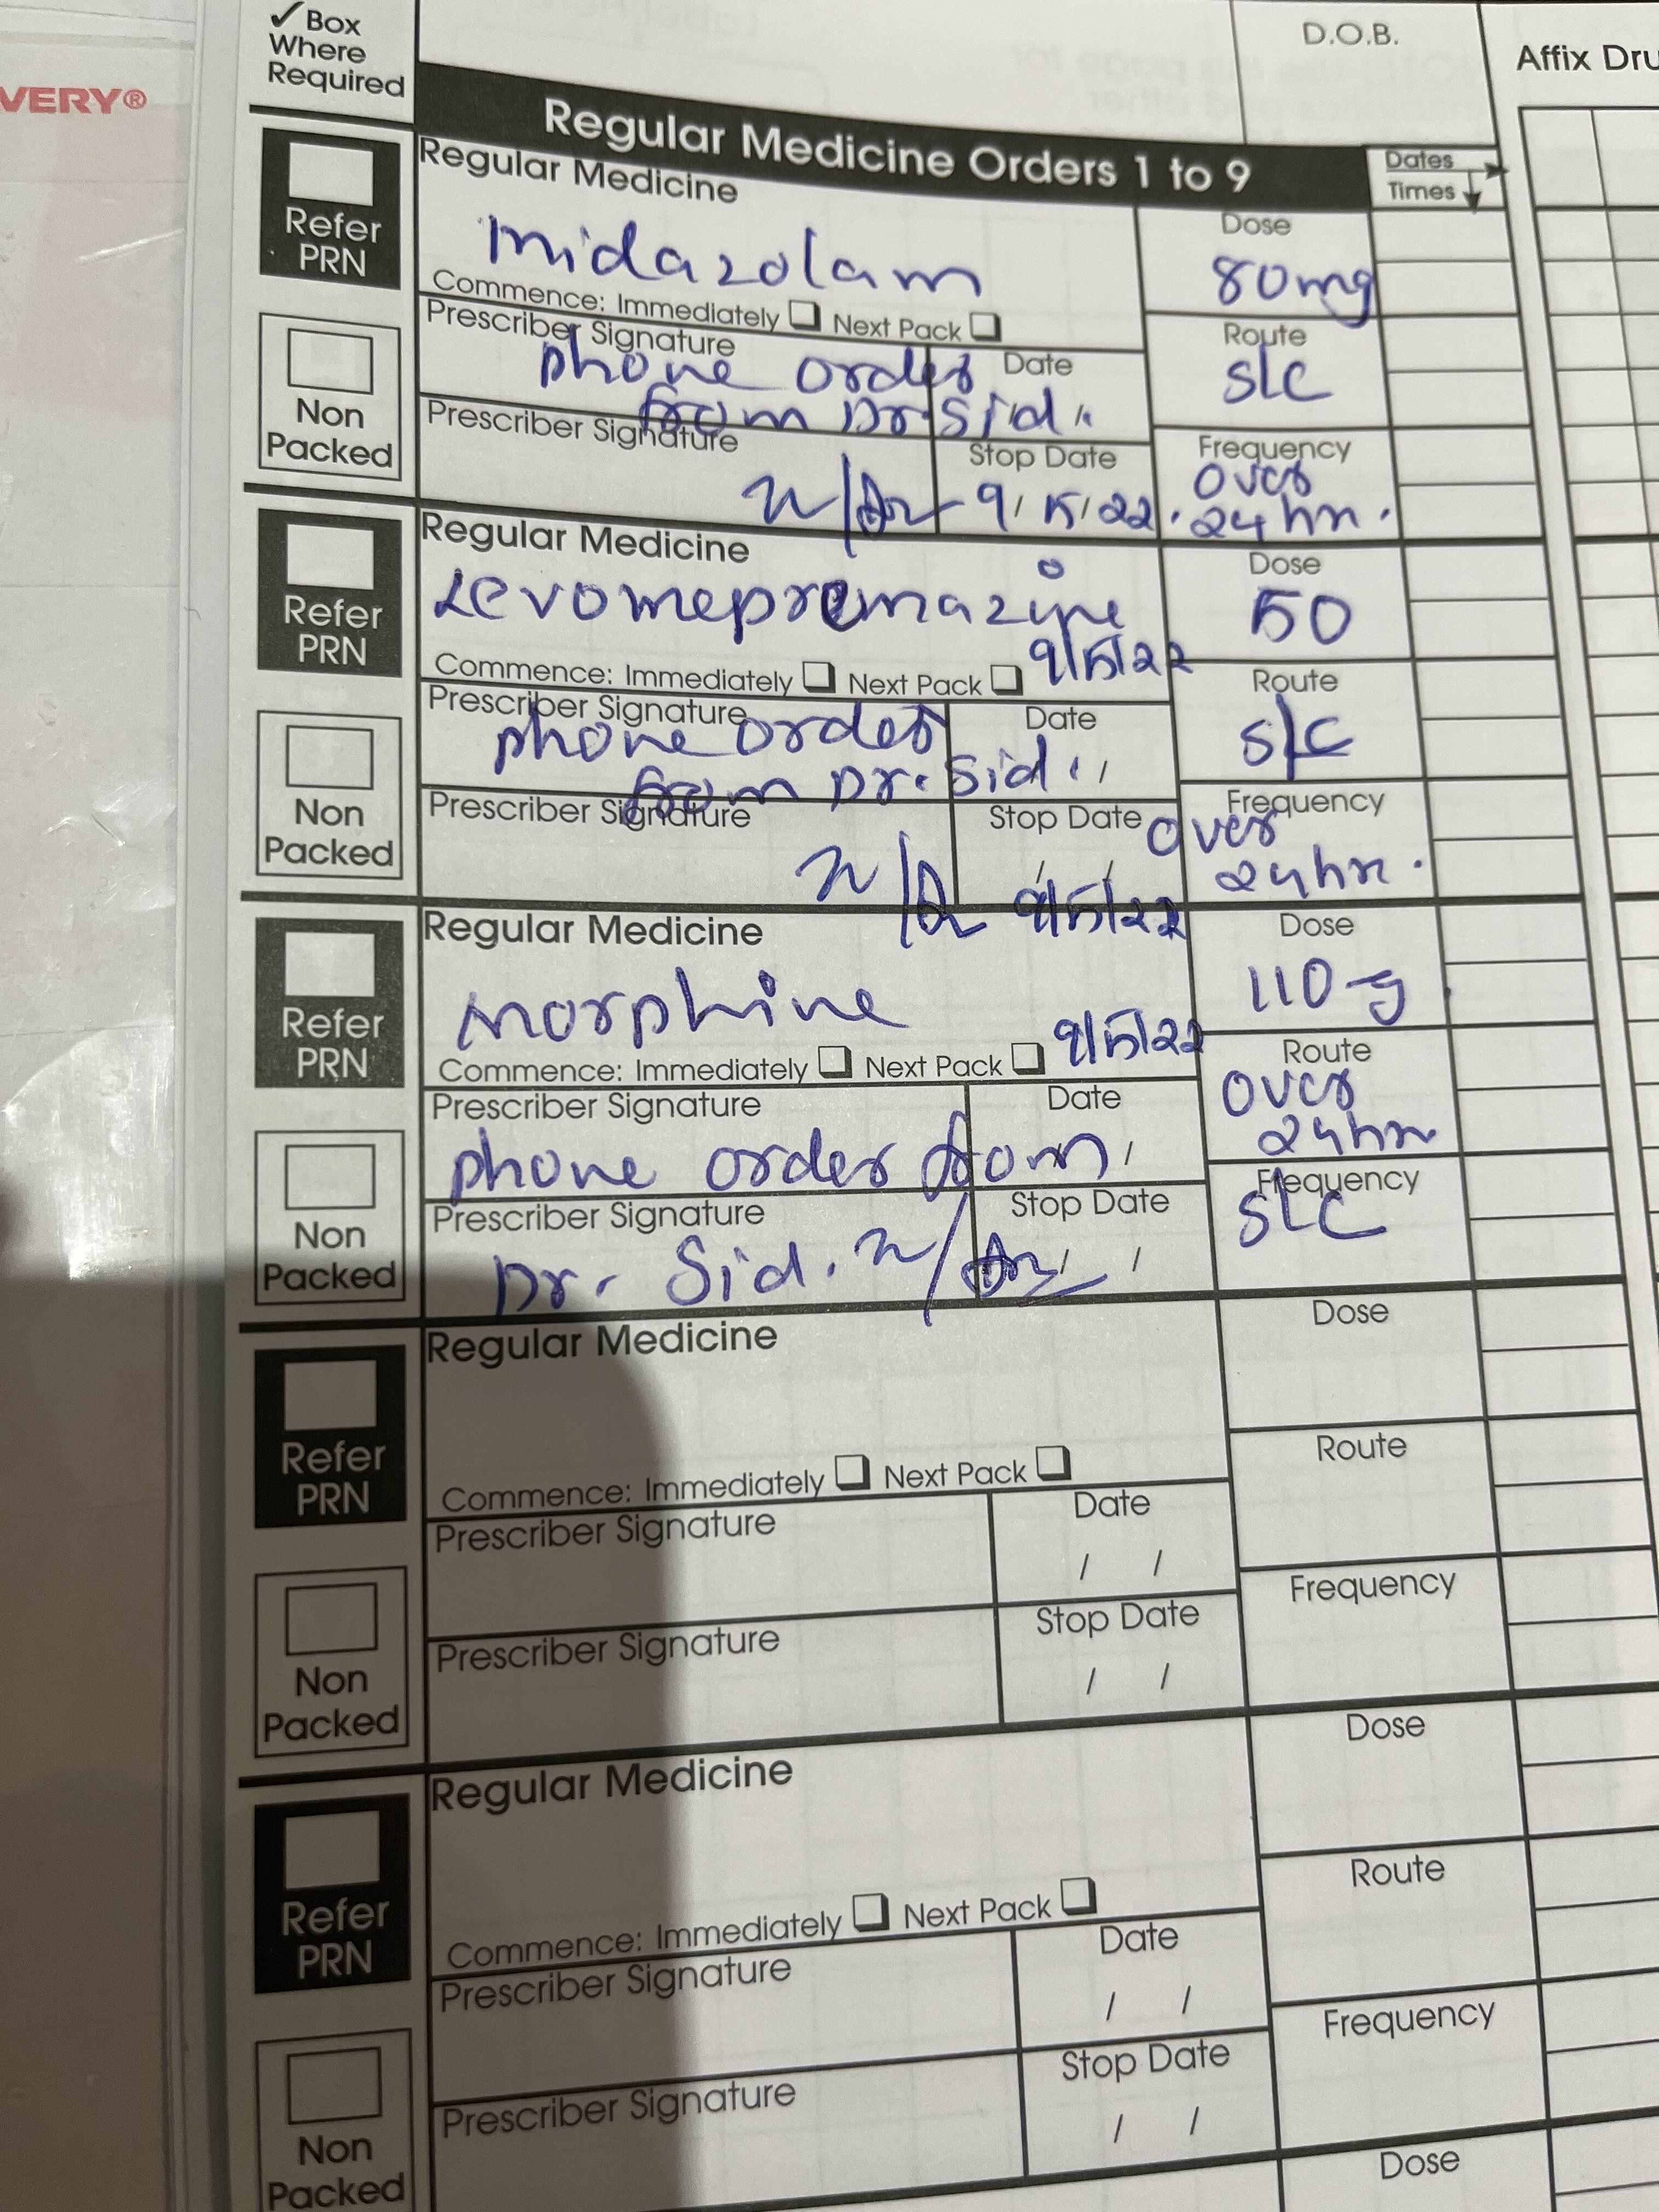 ✓ Box
Where
Required
VERY®
D.O.B.
Affix Dru
Regular Medicine Orders 1 to 9
Dates
Times
Refer
PRN
Regular Medicine
midazolam
Commence: Immediately Next Pack
Dose
80mg
Prescriber Signature
Date
phone order
from Dr. Sid.
Route
s/c
Non
Packed
Prescriber Signature
Stop Date
9/5/22
Frequency
over
24hr.
Refer
PRN
Regular Medicine
Levomepromazine
9/5/22
Commence: Immediately Next Pack
Dose
50
Prescriber Signature
Date
phone order
from Dr. Sid.
Route
s/c
Non
Packed
Prescriber Signature
Stop Date
9/5/22
Frequency
over
24hr.
Refer
PRN
Regular Medicine
morphine
9/5/22
Commence: Immediately Next Pack
Dose
110
Prescriber Signature
Date
phone order from
Route
over
24hr
Non
Packed
Prescriber Signature
Stop Date
Dr. Sid.
/ /
Frequency
s/c
Refer
PRN
Regular Medicine
Commence: Immediately Next Pack
Dose
Prescriber Signature
Date
/ /
Route
Non
Packed
Prescriber Signature
Stop Date
/ /
Frequency
Refer
PRN
Regular Medicine
Commence: Immediately Next Pack
Dose
Prescriber Signature
Date
/ /
Route
Non
Packed
Prescriber Signature
Stop Date
/ /
Frequency
Dose